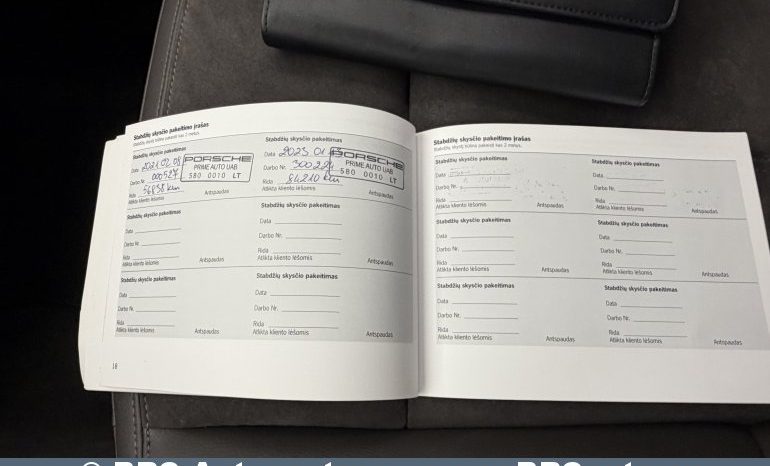 Stabdžių skysčio pakeitimo įrašas
Stabdžių skystį būtina pakeisti kas 2 metus.
Stabdžių skysčio pakeitimas
Data 2021 02 08
Darbo Nr. 000527
Rida 56838 km
Atlikta kliento lėšomis
PORSCHE
PRIME AUTO UAB
580 0010 LT
Antspaudas
Stabdžių skysčio pakeitimas
Data 2023 01
Darbo Nr.
Rida 84210 km
Atlikta kliento lėšomis
PORSCHE
PRIME AUTO UAB
580 0010 LT
Antspaudas
Stabdžių skysčio pakeitimas
Data
Darbo Nr.
Rida
Atlikta kliento lėšomis
Antspaudas
Stabdžių skysčio pakeitimas
Data
Darbo Nr.
Rida
Atlikta kliento lėšomis
Antspaudas
Stabdžių skysčio pakeitimas
Data
Darbo Nr.
Rida
Atlikta kliento lėšomis
Antspaudas
Stabdžių skysčio pakeitimas
Data
Darbo Nr.
Rida
Atlikta kliento lėšomis
Antspaudas
18
Stabdžių skysčio pakeitimo įrašas
Stabdžių skystį būtina pakeisti kas 2 metus.
Stabdžių skysčio pakeitimas
Data
Darbo Nr.
Rida
Atlikta kliento lėšomis
Antspaudas
Stabdžių skysčio pakeitimas
Data
Darbo Nr.
Rida
Atlikta kliento lėšomis
Antspaudas
Stabdžių skysčio pakeitimas
Data
Darbo Nr.
Rida
Atlikta kliento lėšomis
Antspaudas
Stabdžių skysčio pakeitimas
Data
Darbo Nr.
Rida
Atlikta kliento lėšomis
Antspaudas
Stabdžių skysčio pakeitimas
Data
Darbo Nr.
Rida
Atlikta kliento lėšomis
Antspaudas
Stabdžių skysčio pakeitimas
Data
Darbo Nr.
Rida
Atlikta kliento lėšomis
Antspaudas